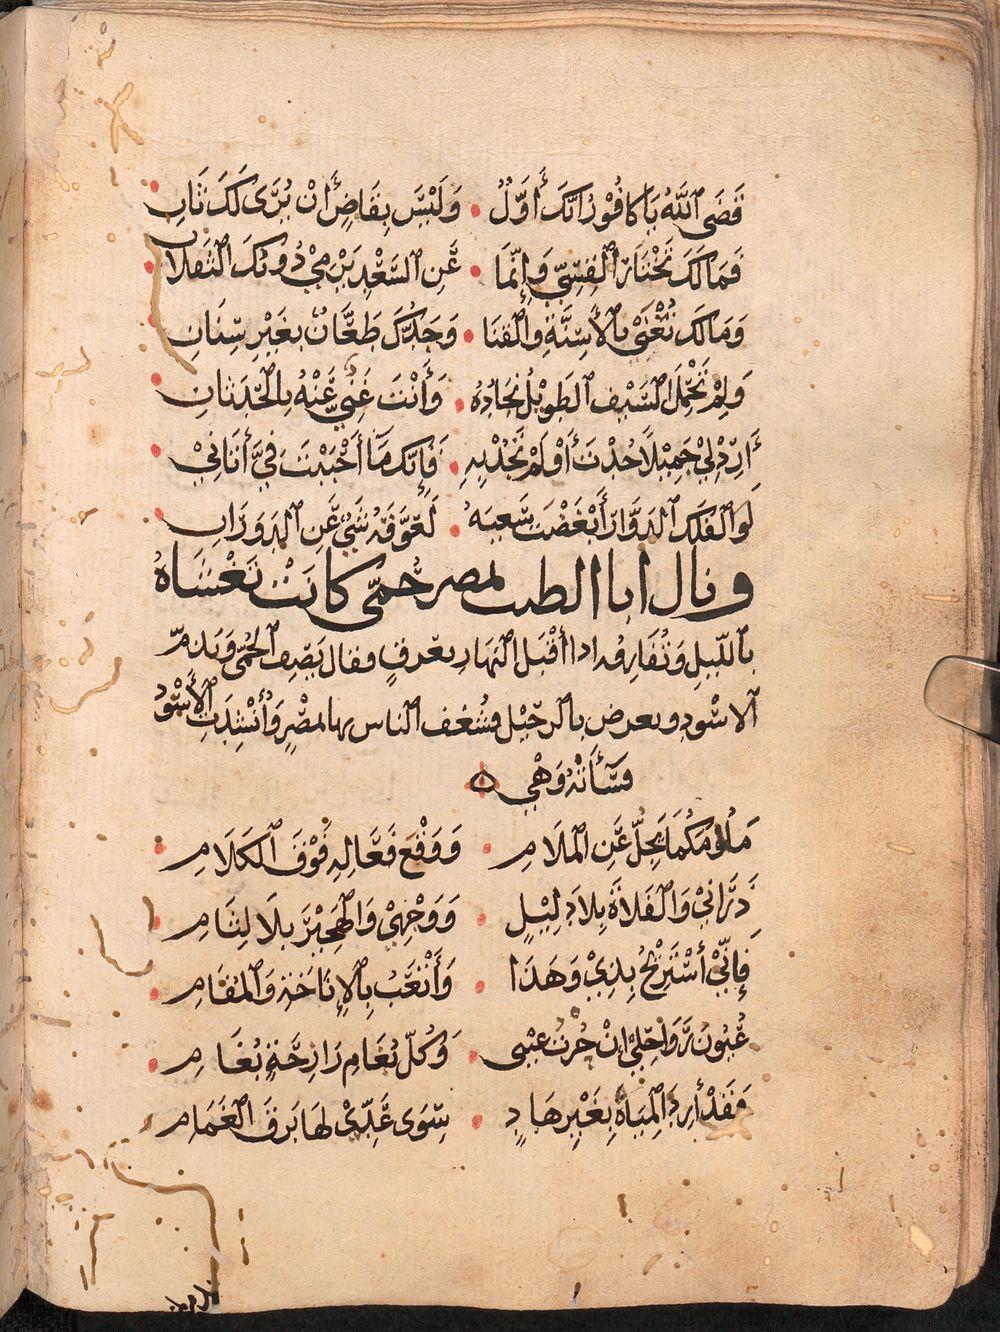 قَضَى ٱللَّهُ يَا كَافُوْرُ انَّكَ أَوَّلٌ • وَلَيْسَ بِقَاضٍ أَنْ يُرَى لَكَ ثَانِ
فَمَا لَكَ تَخْتَارُ الْقِسِيَّ وَإِنَّمَا • عَنِ السَّعْدِ يَرْمِيْ دُونَكَ الثَّقَلَانِ
وَمَا لَكَ تُعْنَى بِالْأَسِنَّةِ وَالْقَنَا • وَجَدُّكَ طَعَّانٌ بِغَيْرِ سِنَانِ
وَلِمْ تَحْمِلُ السَّيْفَ الطَّوِيْلَ نِجَادُهُ • وَأَنْتَ غَنِيٌّ عَنْهُ بِالْحَدَثَانِ
أَرِدْ لِيْ جَمِيْلًا جُدْتَ أَوْ لَمْ تَجُدْ بِهِ • فَإِنَّكَ مَا أَحْبَبْتَ فِيَّ أَتَانِيْ
لَوِ الْفَلَكَ الدَّوَّارَ أَبْغَضْتَ سَعْيَهُ • لَعَوَّقَهُ شَيْءٌ عَنِ الدَّوَرَانِ
ونال ابا الطيب بمصر حُمَّى كَانَتْ تَغْشَاهُ
بِاللَّيْلِ وَتُفَارِقُهُ اذا أَقْبَلَ النَّهَار بعَرَقٍ فقال يَصِفُ الحُمَّى وَيَذمّ
الاسْوَد ويعرض بالرحَيْل فشُغف الناس بها بمصْرَ وَأُنْشِدَت الأَسْوَد
فسَأَتْهُ وَهْيَ
مَلُومُكُمَا يَجِلُّ عَنِ الْمَلَامِ • وَوَقْعُ فَعَالِهِ فَوْقَ الْكَلَامِ
ذَرَانِيْ وَالْفَلَاةَ بِلَا دَلِيْلٍ • وَوَجْهِيْ وَالْهَجِيْرَ بِلَا لِثَامِ
فَإِنِّيْ أَسْتَرِيْحُ بِذِيْ وَهَذَا • وَأَتْعَبُ بِالْإِنَاخَةِ وَالْمُقَامِ
عُيُونُ رَوَاحِلِيْ إِنْ حُرْتُ عَيْنِى • وَكُلُّ بُغَامِ رَازِحَةٍ بُغَامِ
فَقَدْ أَرِدُ الْمِيَاهَ بِغَيْرِ هَادٍ • سِوَى عَدِّيْ لَهَا بَرْقَ الْغَمَامِ